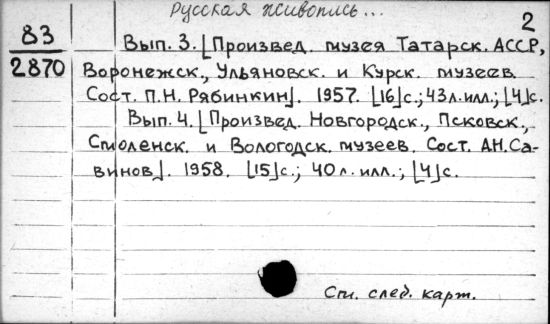 Русская живопись...
2
83
2870
Вып. 3.[Произвед. музея Татарск. АССР,
Воронежск., Ульяновск. и Курск. музеев.
Сост. П.Н. Рябинкин]. 1957. [16]с.; 43л. илл.; [4]с.
Вып. 4.[Произвед. Новгородск., Псковск.,
Смоленск. и Вологодск. музеев. Сост. А.Н. Са-
винов]. 1958. [15]с.; 40л. илл.; [4]с.
См. след. карт.